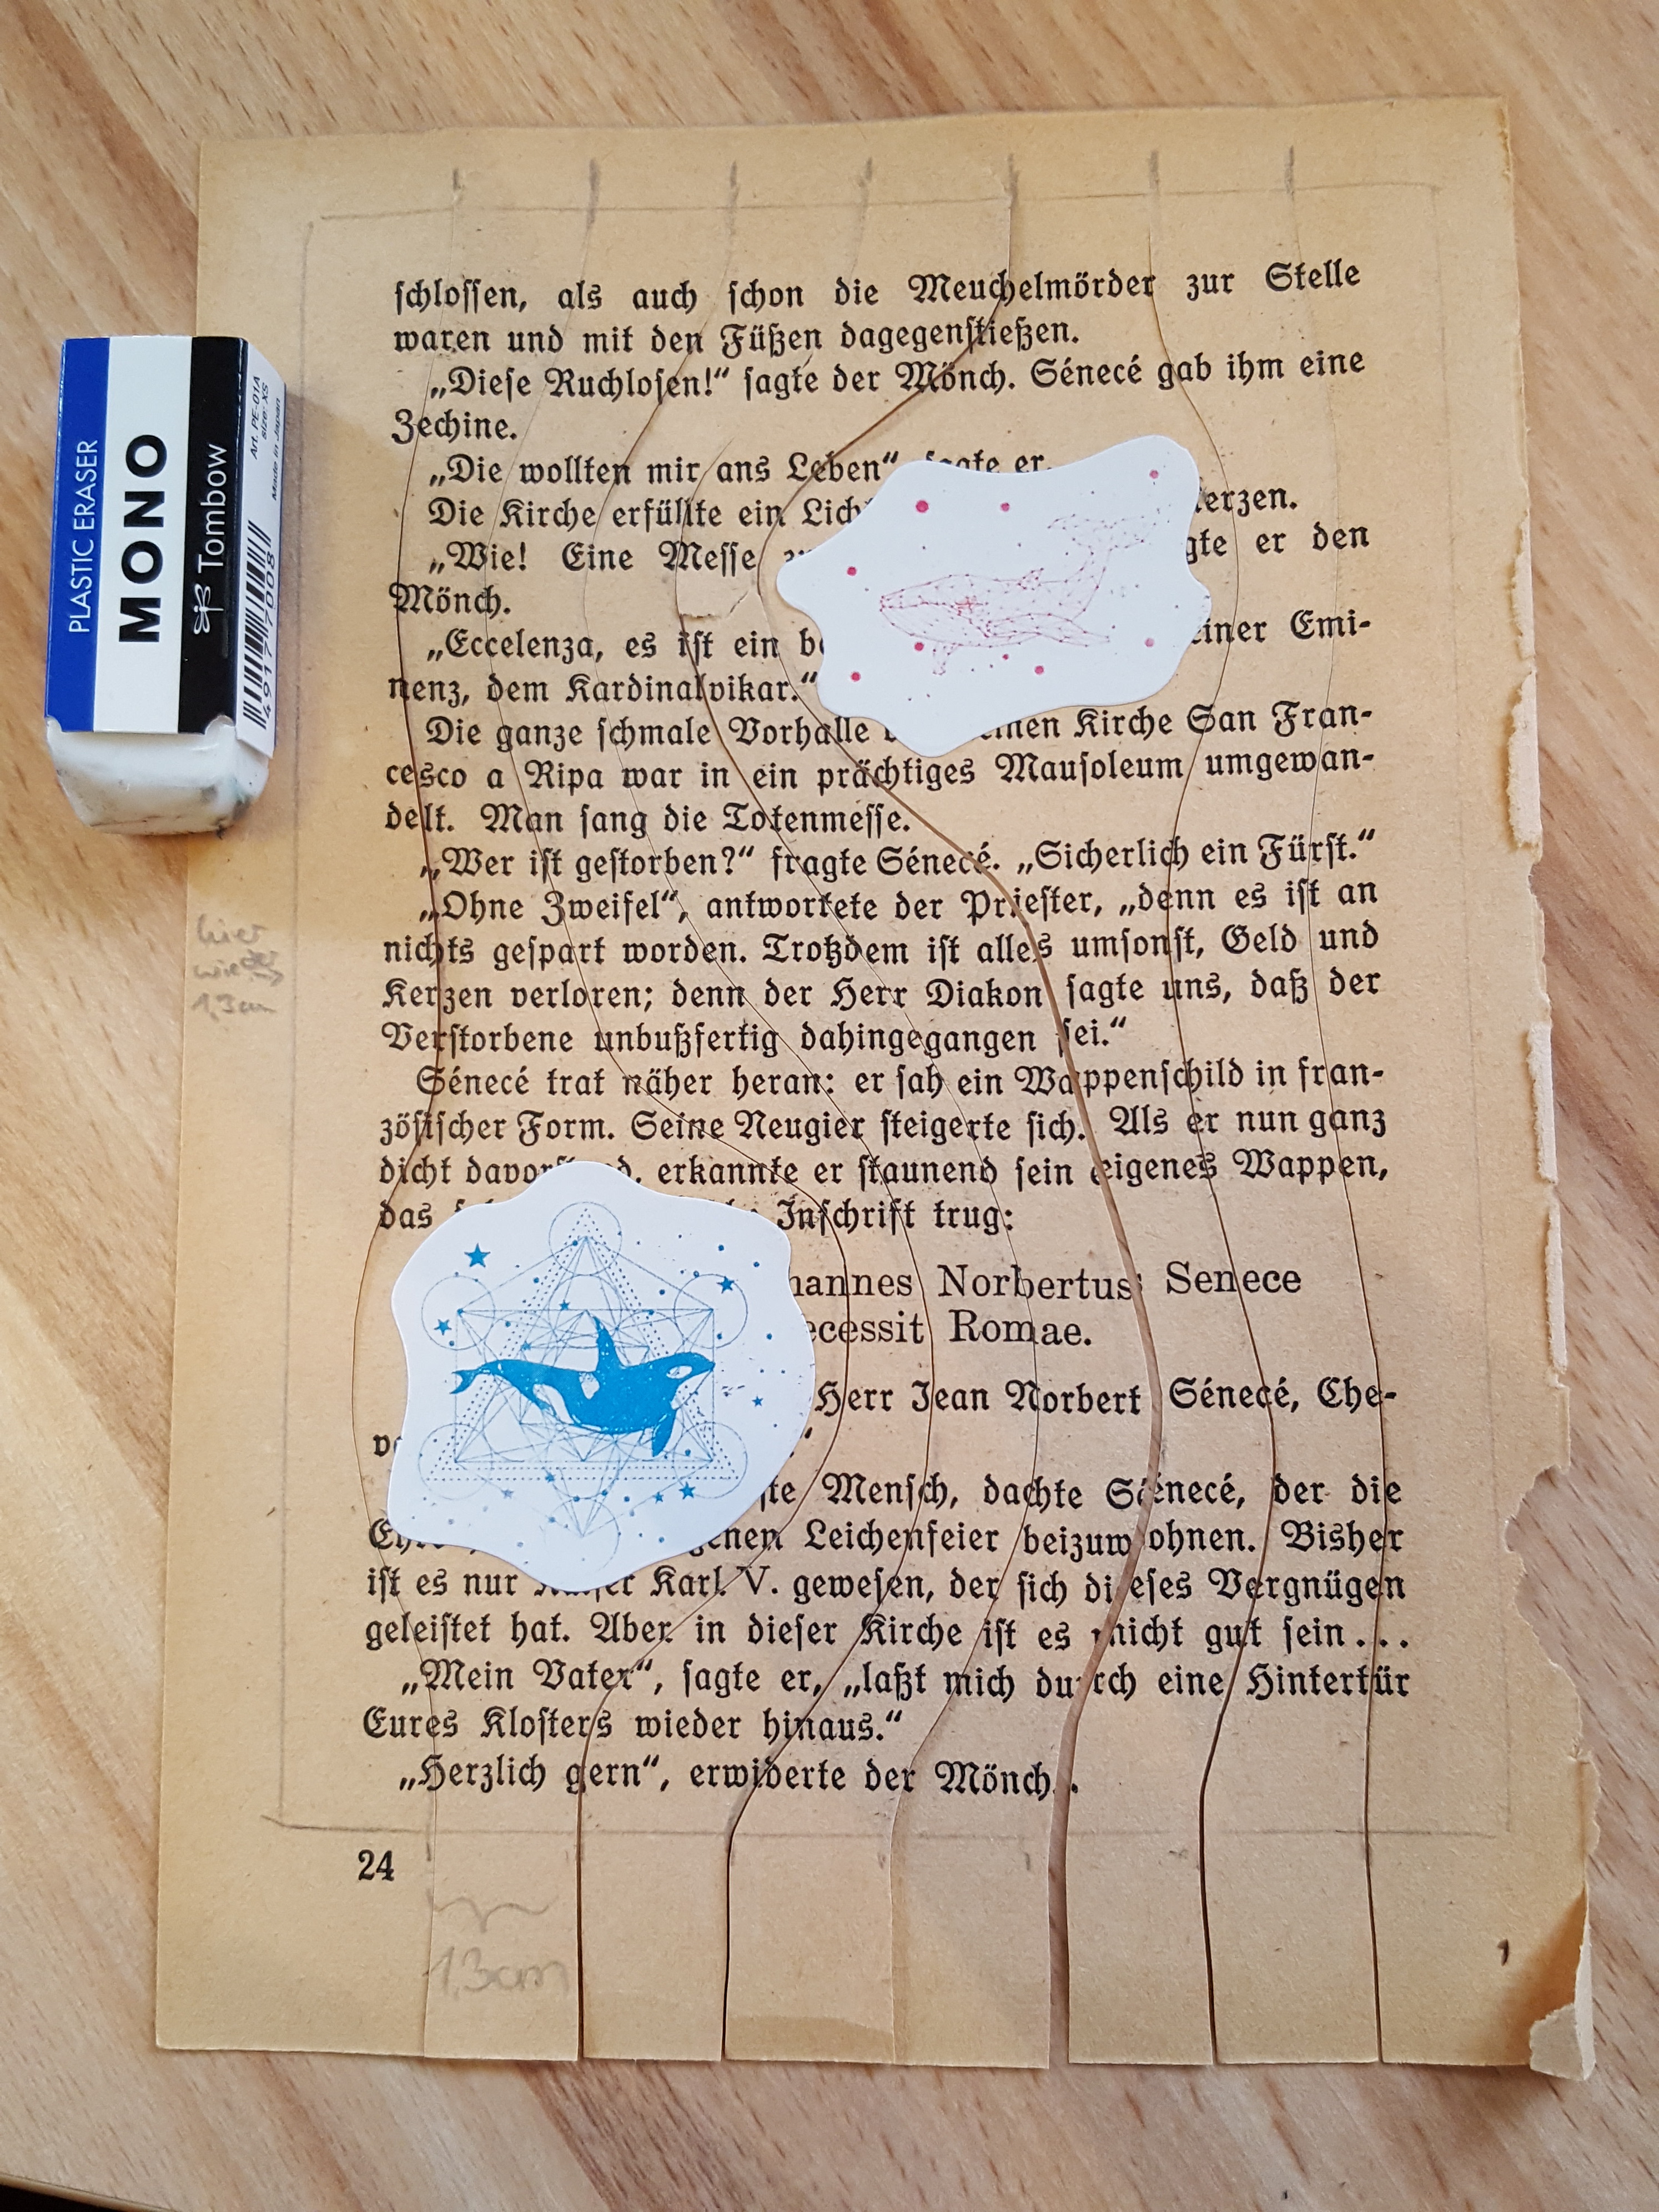 schlossen, als auch schon die Meuchelmörder zur Stelle
waren und mit den Füßen dagegenstießen.
„Diese Ruchlosen!“ sagte der Mönch. Sénecé gab ihm eine
Zechine.
„Die wollten mir ans Leben“, sagte er.
Die Kirche erfüllte ein erzen.
„Wie! Eine Messe er den
Mönch.
„Eccelenza, es ist ein einer Emi-
nenz, dem Kardinalvikar.“
Die ganze schmale Vorhalle Kirche San Fran-
cesco a Ripa war in ein prächtiges Mausoleum umgewan-
delt. Man sang die Totenmesse.
„Wer ist gestorben?“ fragte Sénecé. „Sicherlich ein Fürst.“
„Ohne Zweifel“, antwortete der Priester, „denn es ist an
nichts gespart worden. Trotzdem ist alles umsonst, Geld und
Kerzen verloren; denn der Herr Diakon sagte uns, daß der
Verstorbene unbußfertig dahingegangen sei.“
Sénecé trat näher heran: er sah ein Wappenschild in fran-
zösischer Form. Seine Neugier steigerte sich. Als er nun ganz
dicht erkannte er staunend sein eigenes Wappen,
das Inschrift trug:
hannes Norbertus Senece
ecessit Romae.
Herr Jean Norbert Sénecé, Che-
ste Mensch, dachte Sénecé, der die
genen Leichenfeier beizuwohnen. Bisher
ist es nur Karl V. gewesen, der sich dieses Vergnügen
geleistet hat. Aber in dieser Kirche ist es nicht gut sein...
„Mein Vater“, sagte er, „laßt mich durch eine Hintertür
Eures Klosters wieder hinaus.“
„Herzlich gern“, erwiderte der Mönch..
24
1,3cm
hier
wieder
1,3cm
PLASTIC ERASER
MONO
Tombow
Art. PE-01A
size: XS
Made in Japan
4917 7008